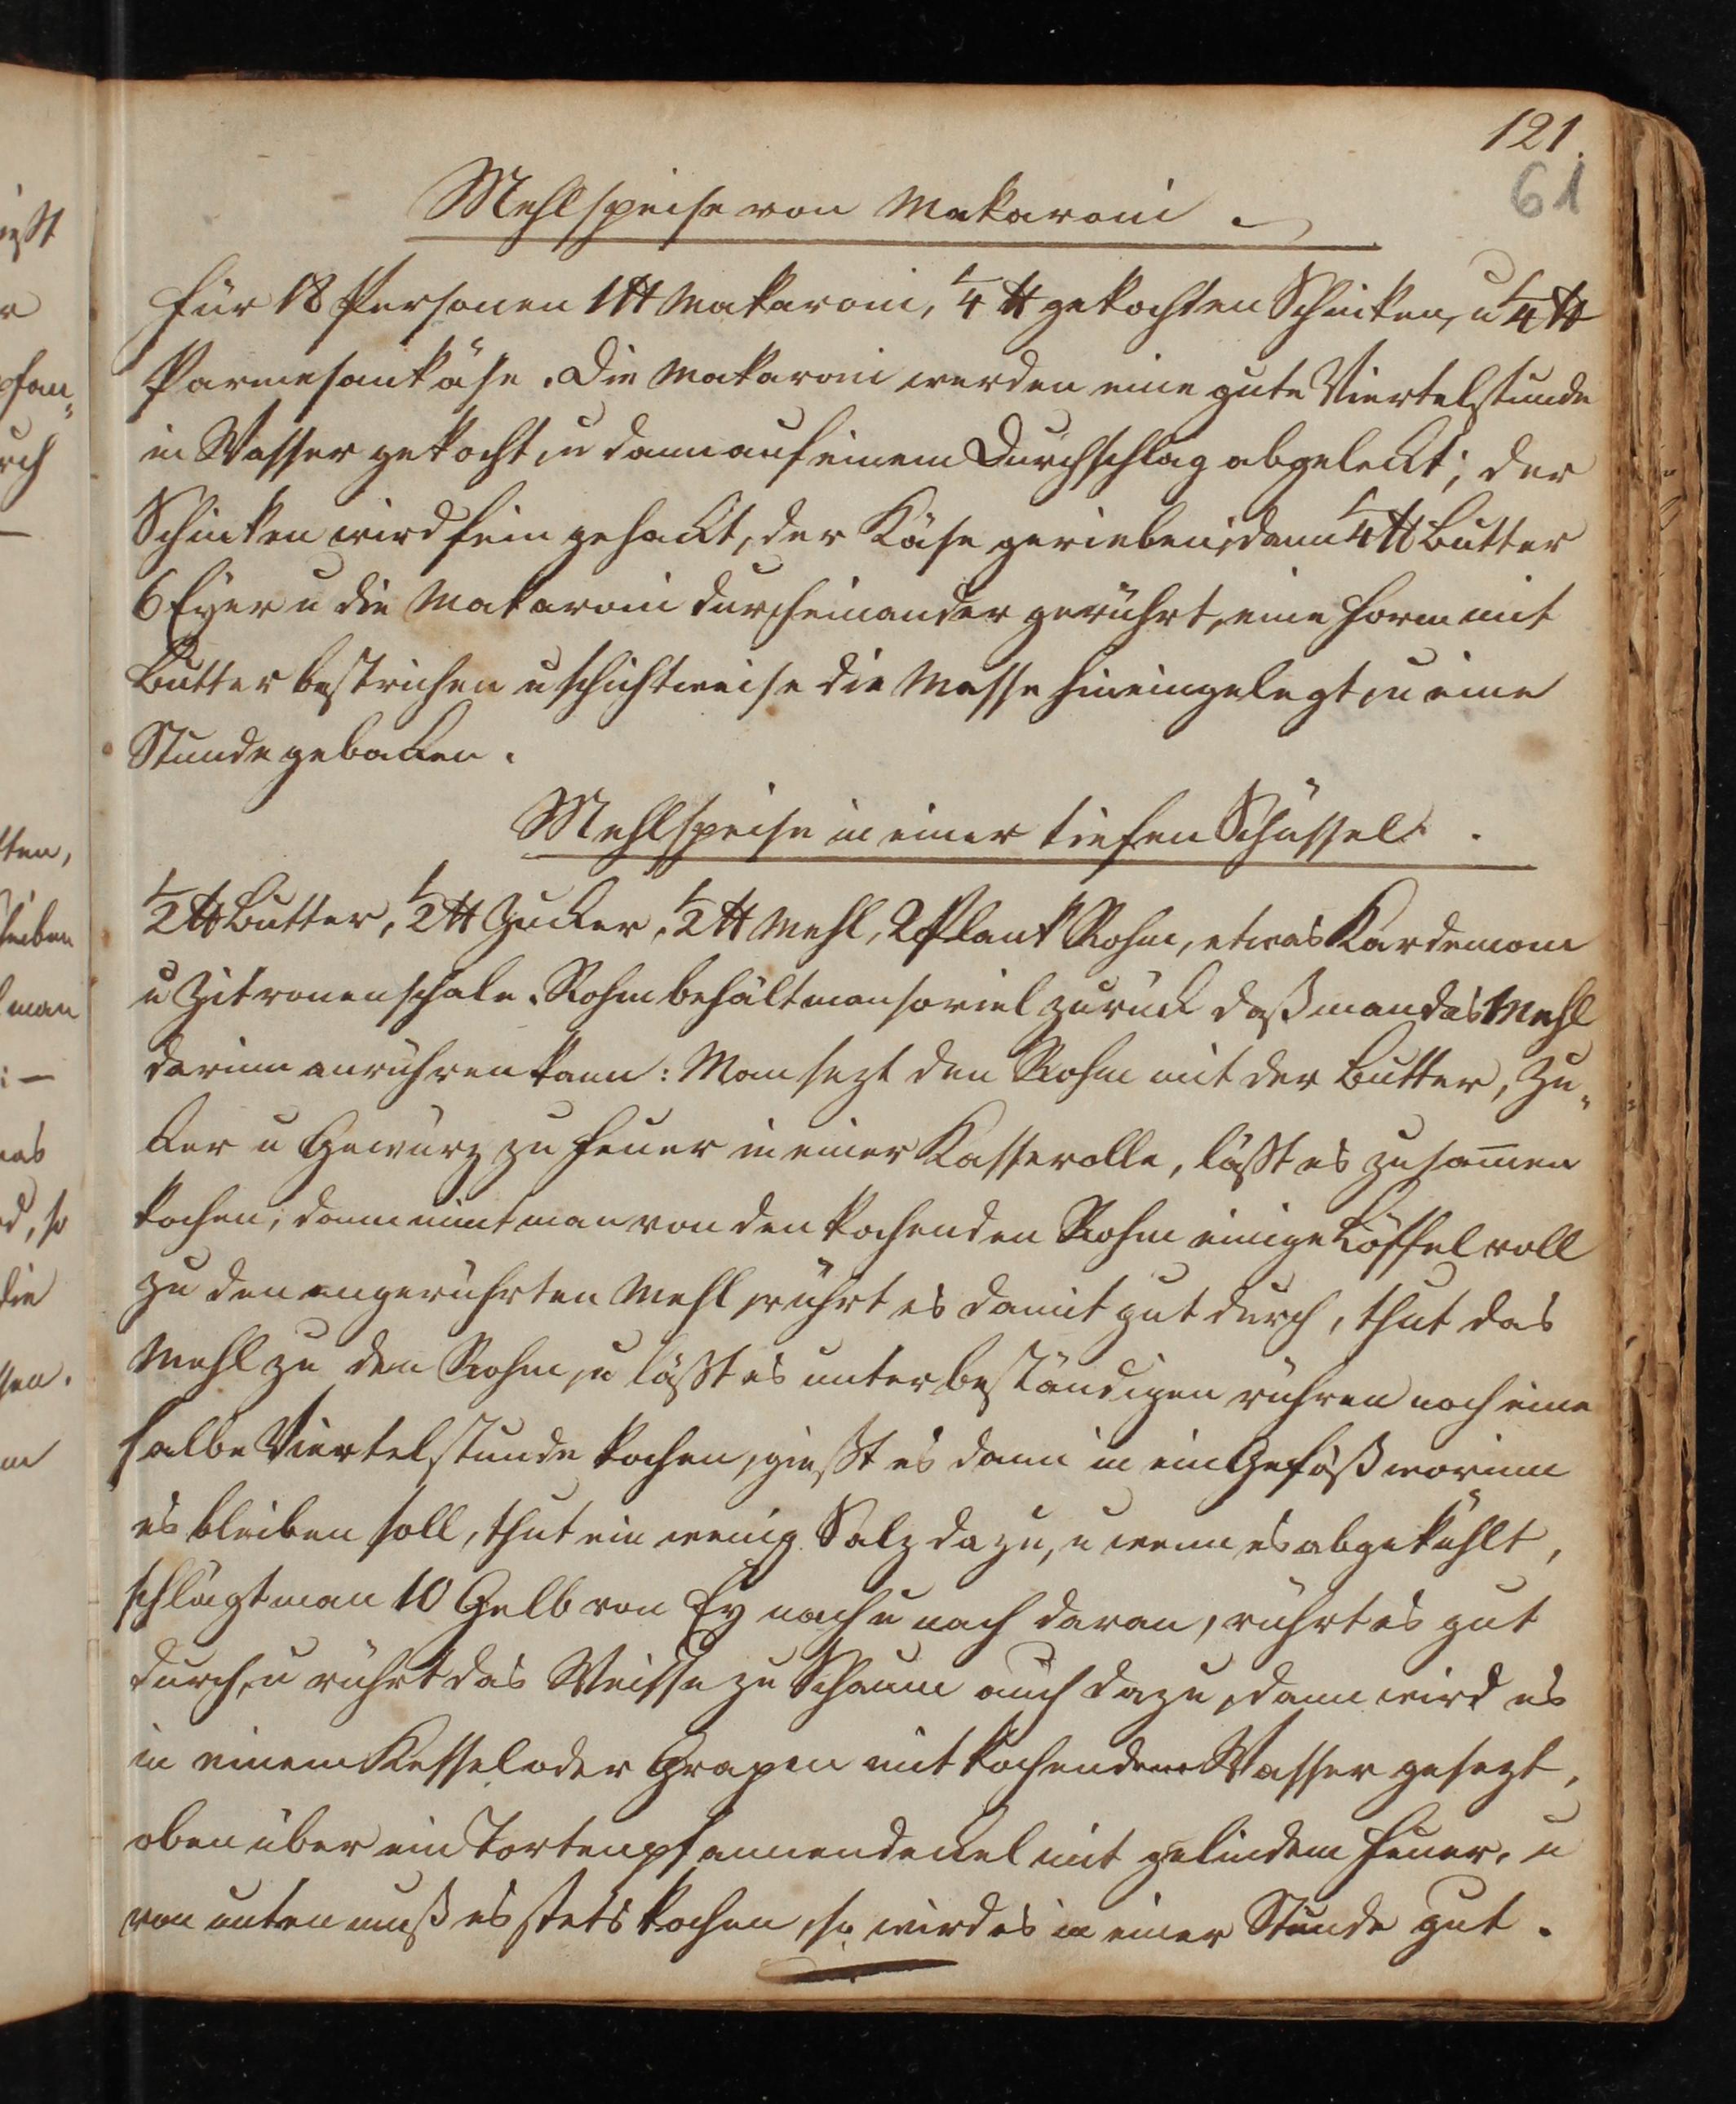 121.
61
Mehlspeise von Makaroni.
Für 18 Personen 1 ℔ Makaroni, 1/4 ℔ gekochten Schinken, u 1/4 ℔
Parmesankäse. Die Makaroni werden eine gute Viertelstunde
in Wasser gekocht, u dann auf einem Durchschlag abgeleckt; der
Schinken wird fein gehackt, der Käse gerieben, dann 1/4 ℔ Butter
6 Eyer u die Makaroni durcheinander gerührt, eine Form mit
Butter bestrichen u schichtweise die Masse hineingelegt, u eine
Stunde gebacken.
Mehlspeise in einer tiefen Schüssel.
1/2 ℔ Butter, 1/2 ℔ Zucker, 1/2 ℔ Mehl, 2 Plank Rohm, etwas Kardemom
u Zitronenschale. Rohm behält man soviel zurück daß man das Mehl
darinn anrühren kann: Man sezt den Rohm mit der Butter, Zu„
cker u Gewürz zu Feuer in einer Kasserolle, läßt es zusam̅en
kochen; dann nimt man von den kochenden Rohm einige Löffel voll
zu den angerührten Mehl, rührt es damit gut durch, thut das
Mehl zu den Rohm, u läßt es unter beständigen rühren noch eine
halbe Viertelstunde kochen, gießt es dann in ein Gefäß worinn
es bleiben soll, thut ein wenig Salz dazu, u wenn es abgekühlt,
schlägt man 10 Gelb von Ey nach u nach daran, rührt es gut
durch, u rührt das Weisse zu Schaum auch dazu, dann wird es
in einem Kessel oder Grapen mit kochendem Wasser gesezt,
oben über ein Tortenpfannendeckel mit gelindem Feuer, u
von unten muß es stets kochen, so wird es in einer Stunde gut.